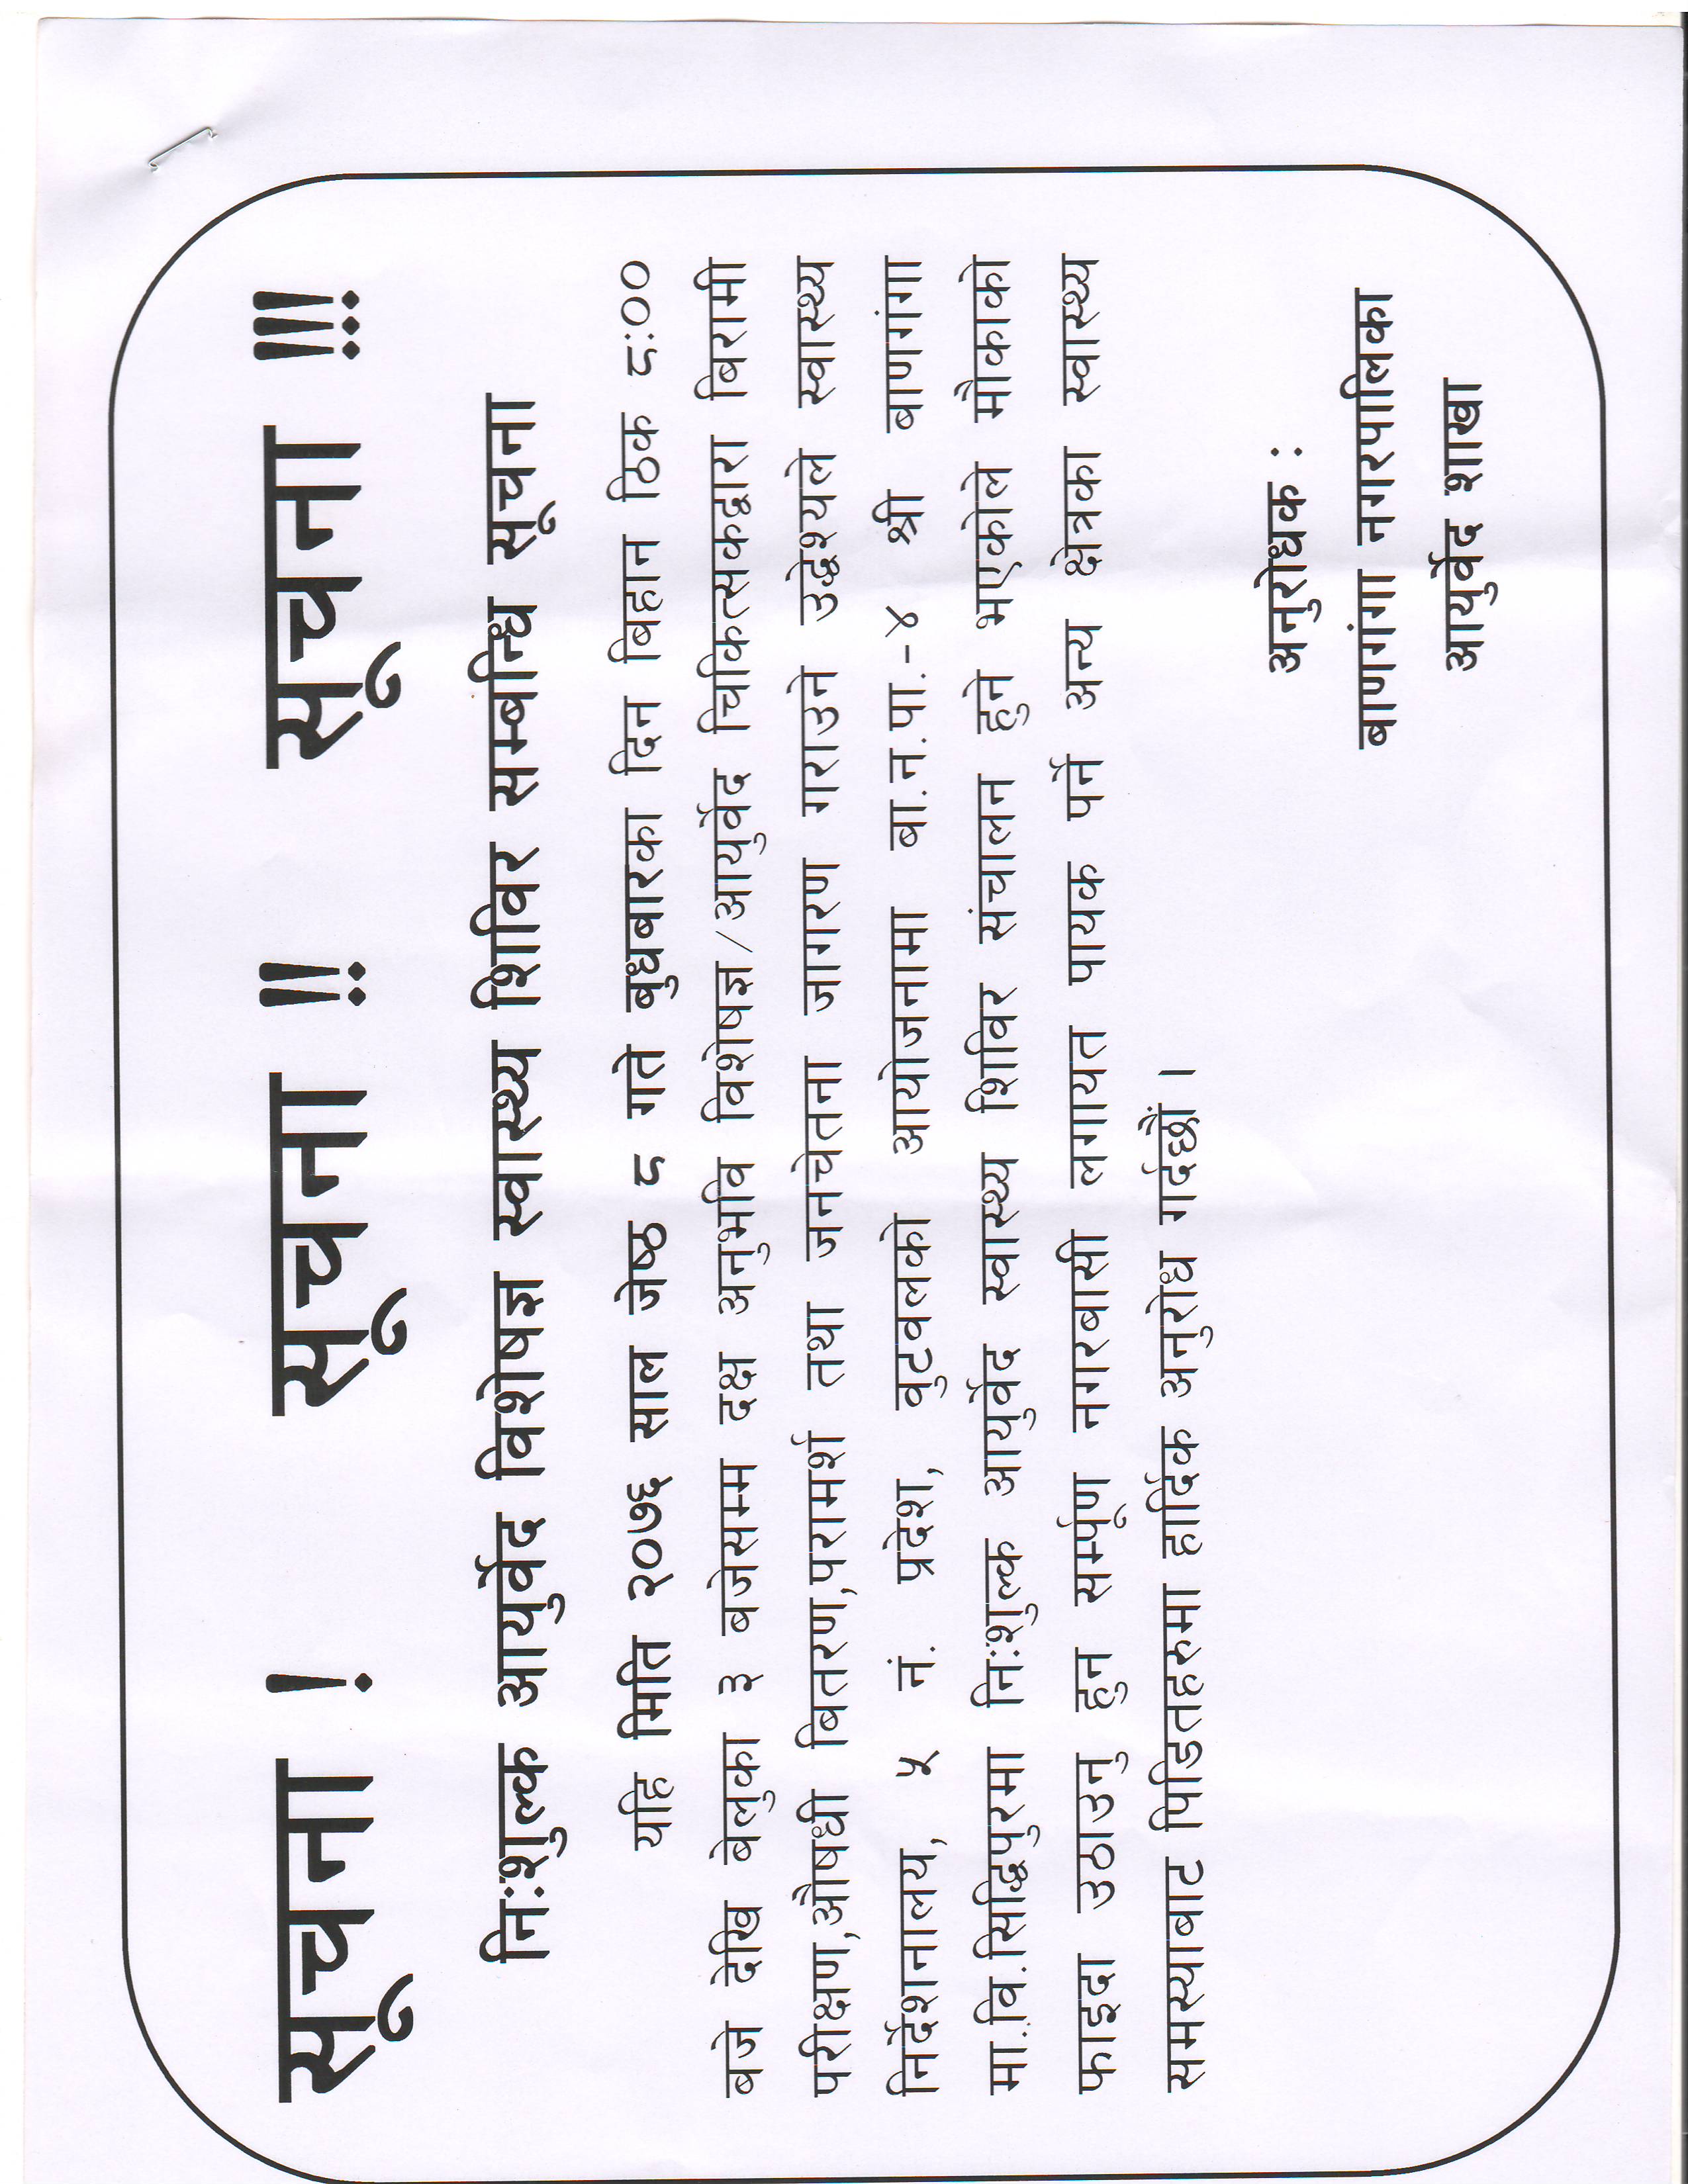 सूचना ! सूचना !! सूचना !!!
निःशुल्क आयुर्वेद विशेषज्ञ स्वास्थ्य शिविर सम्बन्धि सूचना
यहि मिति २०७६ साल जेष्ठ ८ गते बुधबारका दिन बिहान ठिक ८:००
बजे देखि बेलुका ३ बजेसम्म दक्ष अनुभवि विशेषज्ञ/आयुर्वेद चिकित्सकद्वारा बिरामी
परीक्षण,औषधी बितरण,परामर्श तथा जनचेतना जागरण गराउने उद्धेश्यले स्वास्थ्य
निर्देशनालय, ५ नं. प्रदेश, बुटवलको आयोजनामा बा.न.पा.-४ श्री बाणगंगा
मा.वि.सिद्धिपुरमा निःशुल्क आयुर्वेद स्वास्थ्य शिविर संचालन हुने भएकोले मौकाको
फाइदा उठाउनु हुन सर्म्पूण नगरबासी लगायत पायक पर्ने अन्य क्षेत्रका स्वास्थ्य
समस्याबाट पिडितहरुमा हार्दिक अनुरोध गर्दछौं ।
अनुरोधक :
बाणगंगा नगरपालिका
आयुर्वेद शाखा